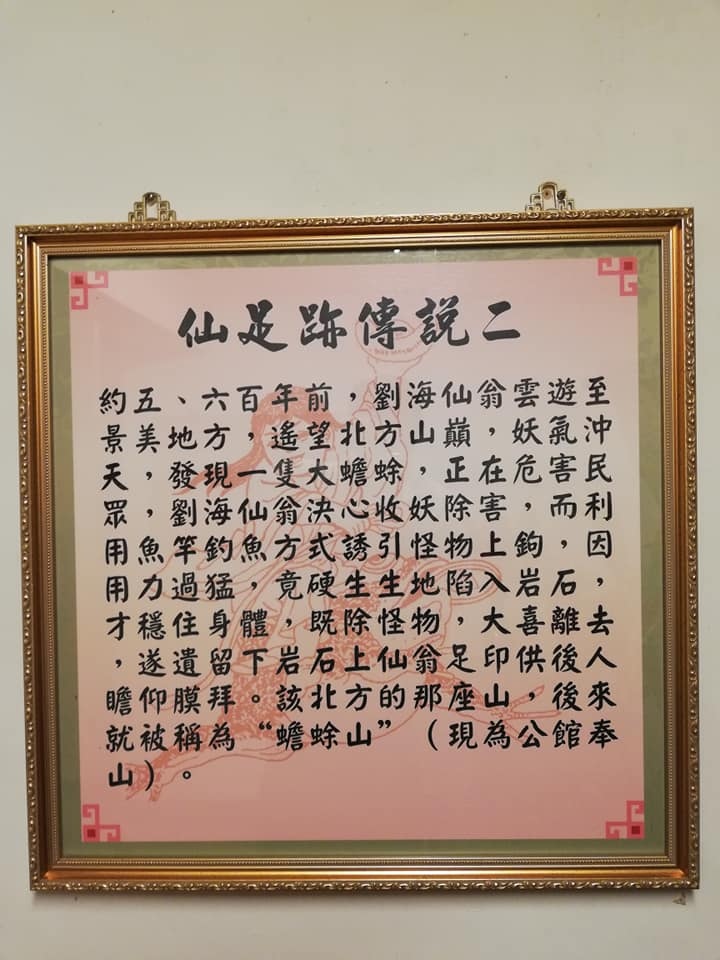 仙足跡傳說二
約五、六百年前，劉海仙翁雲遊至
景美地方，遙望北方山巔，妖氣沖
天，發現一隻大蟾蜍，正在危害民
眾，劉海仙翁決心收妖除害，而利
用魚竿釣魚方式誘引怪物上鉤，因
用力過猛，竟硬生生地陷入岩石，
才穩住身體，既除怪物，大喜離去
，遂遺留下岩石上仙翁足印供後人
瞻仰膜拜。該北方的那座山，後來
就被稱為“蟾蜍山”（現為公館奉
山）。